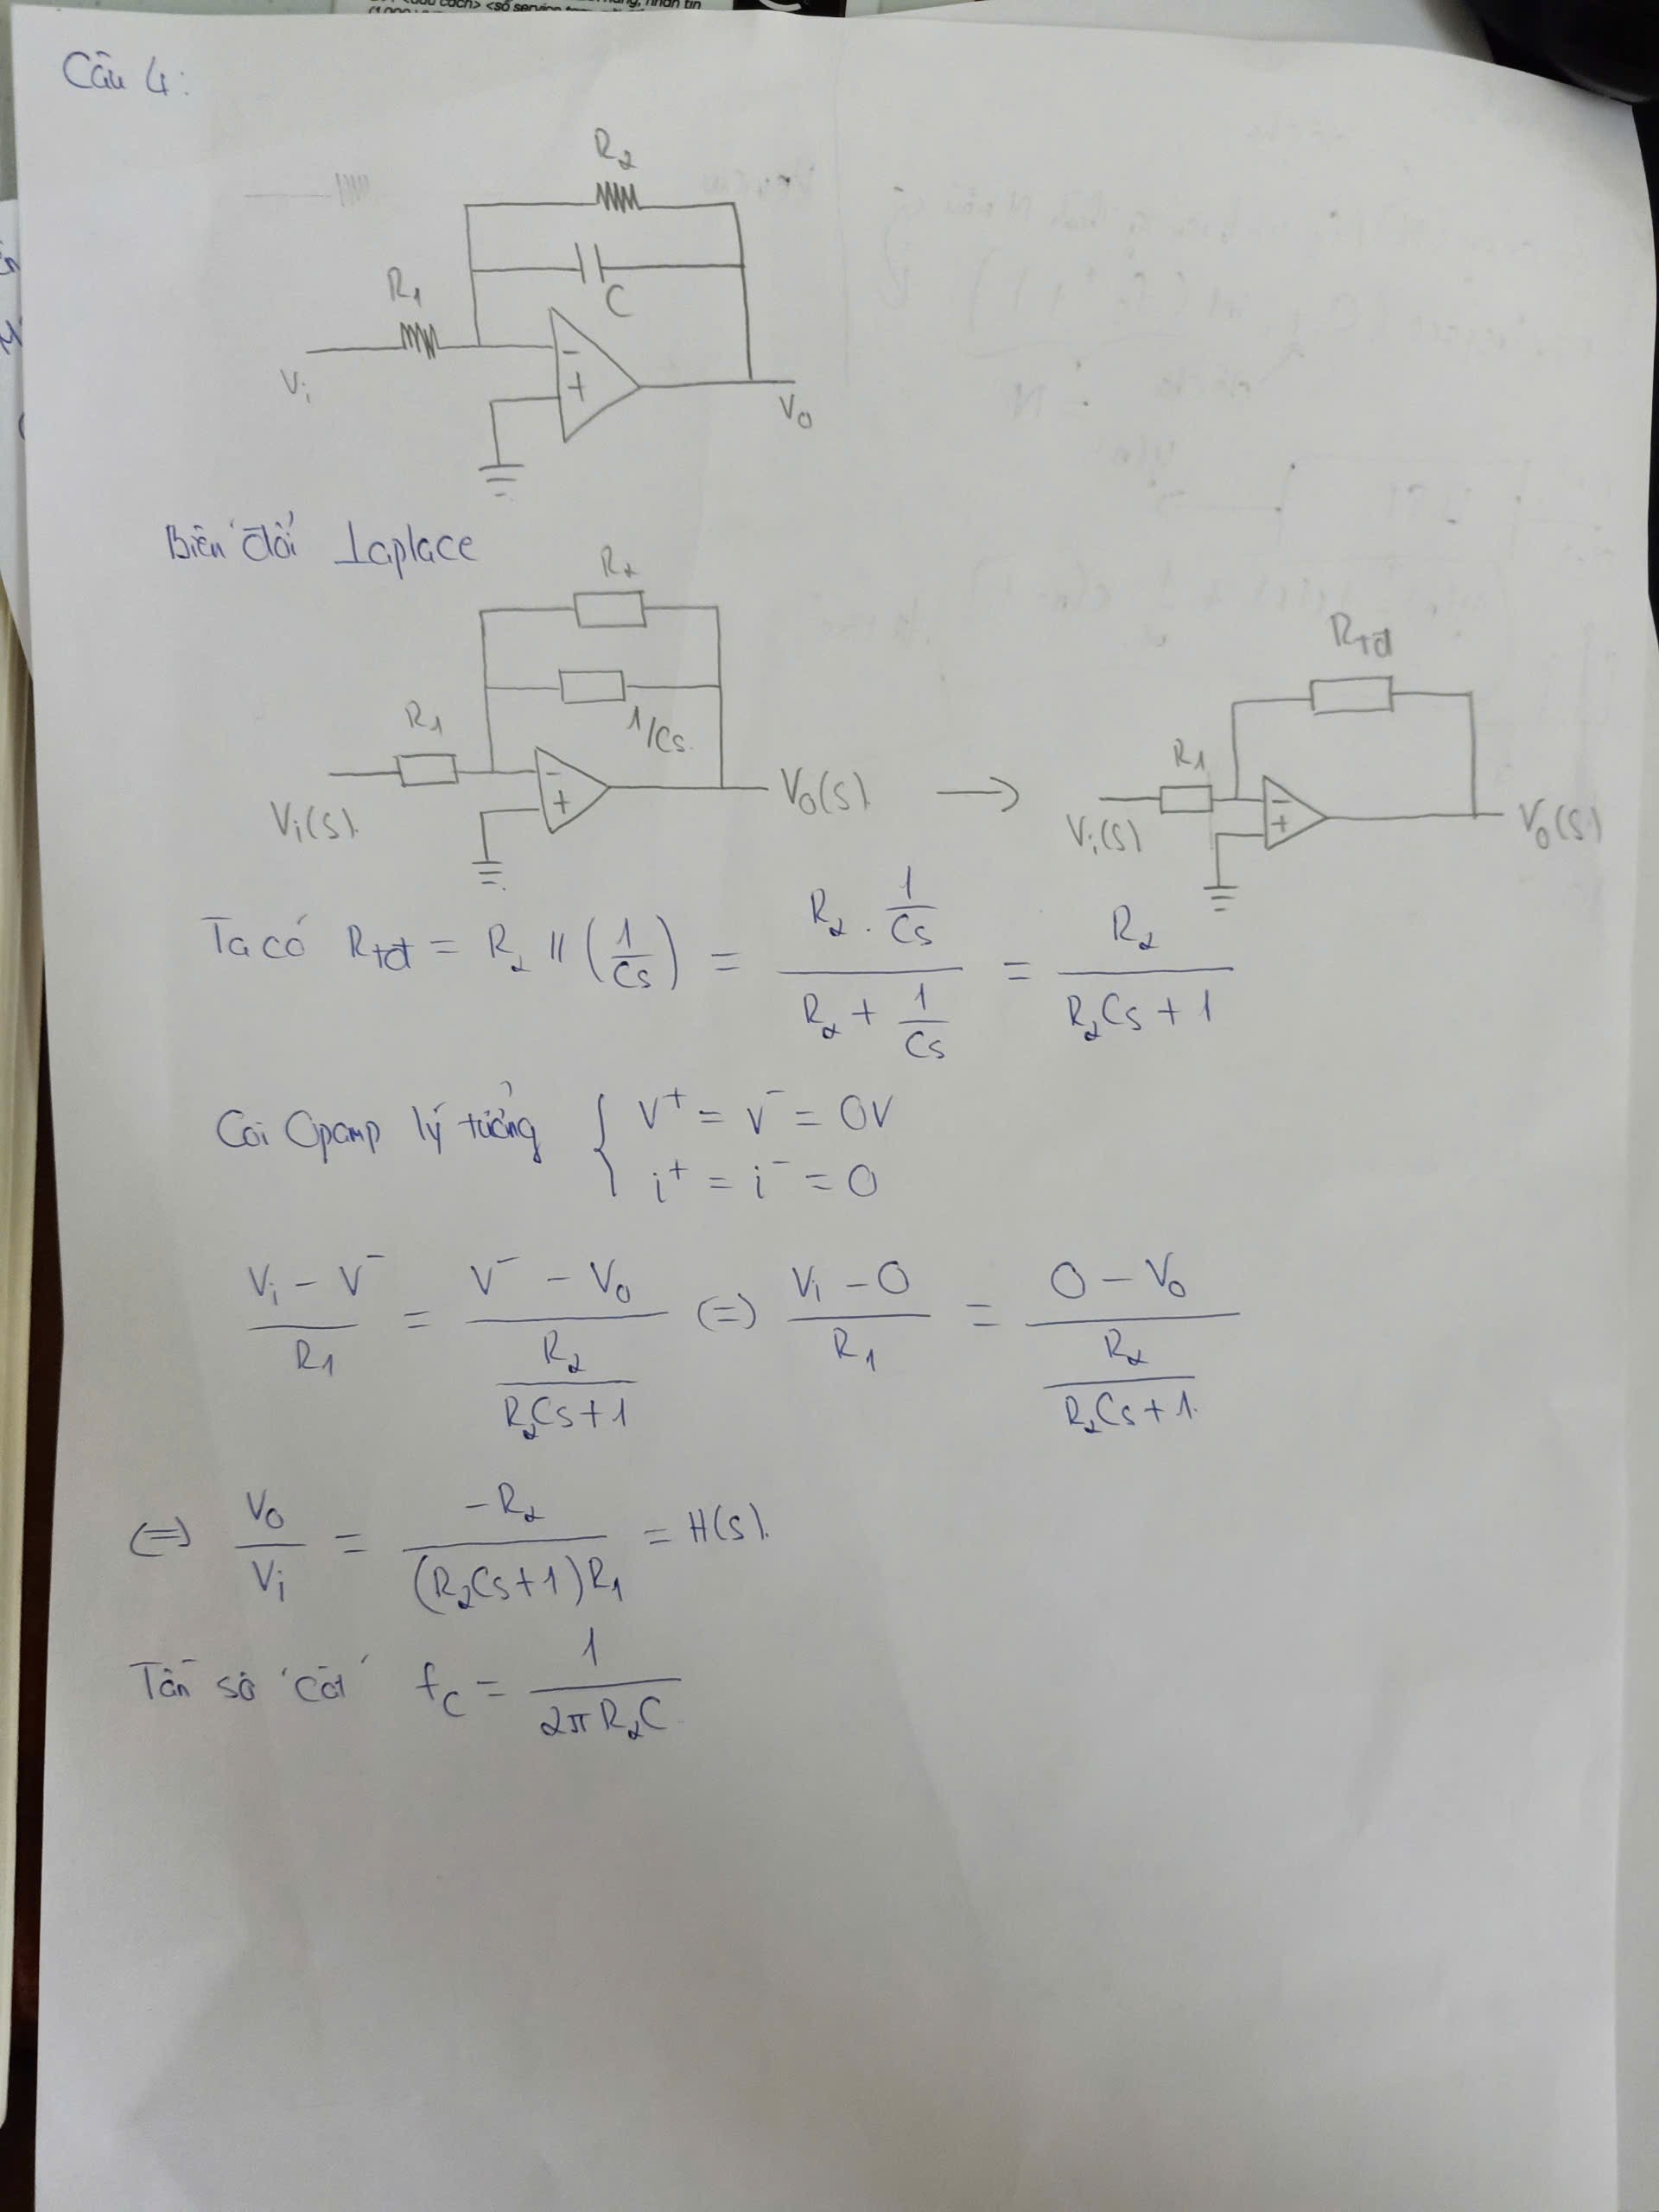 Câu 4:
R2
C
R1
Vi
-
+
V0
Biến đổi Laplace
R2
1/Cs
R1
-
+
Vi(s)
V0(s) →
Rtđ
R1
-
+
Vi(s)
V0(s)
Ta có Rtđ = R2 // (1/Cs) = (R2 . 1/Cs) / (R2 + 1/Cs) = R2 / (R2Cs + 1)
Coi Opamp lý tưởng { V+ = V- = 0V
i+ = i- = 0
(Vi - V-) / R1 = (V- - V0) / (R2 / (R2Cs+1)) (=) (Vi - 0) / R1 = (0 - V0) / (R2 / (R2Cs+1))
(=) V0 / Vi = -R2 / ((R2Cs+1)R1) = H(s).
Tần số cắt fc = 1 / (2πR2C)